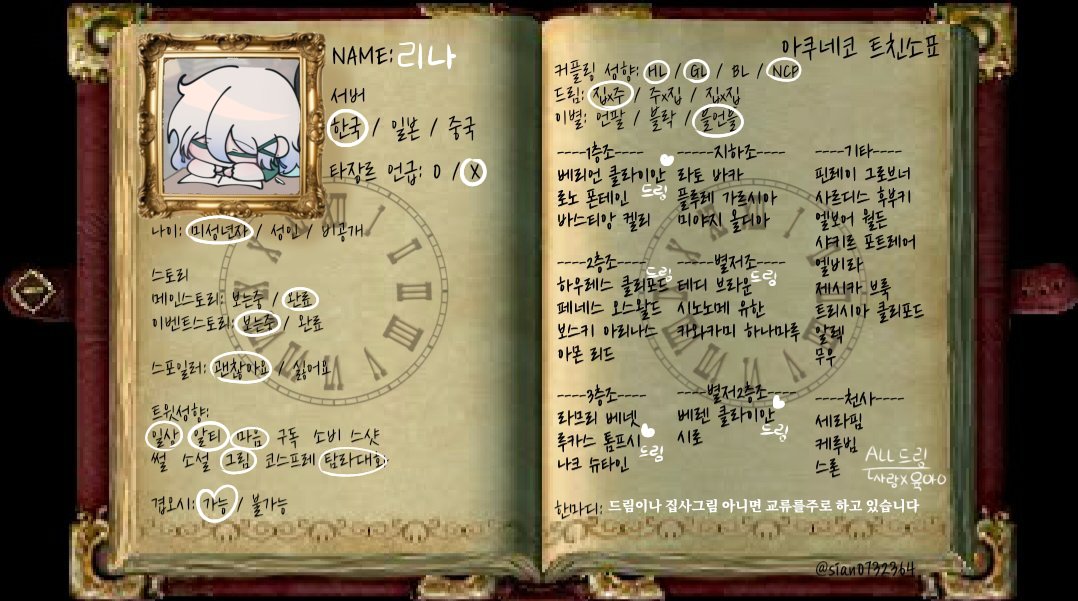 NAME: 리나
서버
한국 / 일본 / 중국
타장르 언급: O / X
나이: 미성년자 / 성인 / 비공개
스토리
메인스토리: 보는중 / 완료
이벤트스토리: 보는중 / 완료
스포일러: 괜찮아요 / 싫어요
트윗성향:
일상 알티 마음 구독 소비 스샷
썰 소설 그림 코스프레 탐라대화
겹오시: 가능 / 불가능
아쿠네코 트친소표
커플링 성향: HL / GL / BL / NCP
드림: 집x주 / 주x집 / 집x집
이별: 언팔 / 블락 / 블언블
----1층조----
베리언 클라이안
드림
로노 폰테인
바스티앙 켈리
----지하조----
라토 바카
플루레 가르시아
미야지 올디아
----기타----
핀레이 그로브너
사르디스 후부키
엘보어 월든
샤키르 포트레어
엘비라
제시카 브룩
트리시아 클리포드
알렉
무우
----2층조----
드림
하우레스 클리포드
페네스 오스왈드
보스키 아리나스
아몬 리드
----별저조----
드림
테디 브라운
시노노메 유한
카와카미 하나마루
----3층조----
라므리 베넷
루카스 톰프시
드림
나크 슈타인
----별저2층조----
베렌 클라이안
드림
시로
----천사----
세라핌
케루빔
스론
ALL드림
사랑X 육아O
한마디: 드림이나 집사그림 아니면 교류를주로 하고 있습니다
@sian0732364